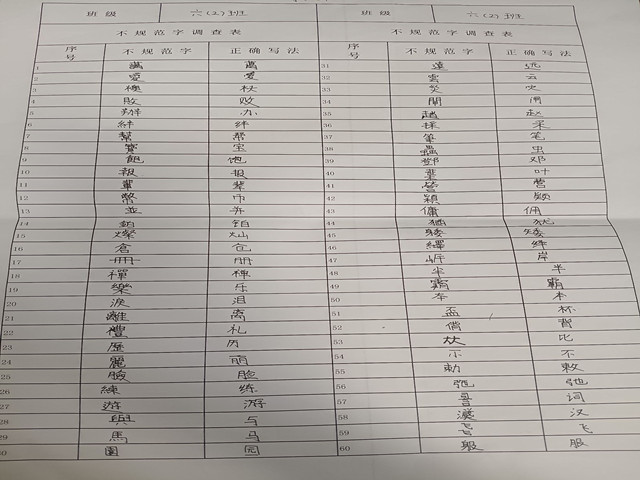 班级 六(2)班 班级 六(2)班
不规范字调查表 不规范字调查表
序号 不规范字 正确写法 序号 不规范字 正确写法
1 31 遠 远
2 愛 爱 32 雲 云
3 33 火
4 敗 败 34 開 开
5 辦 办 35 趙 赵
6 絆 绊 36 采
7 幫 帮 37 筆 笔
8 寶 宝 38 蟲 虫
9 飽 饱 39 鄧 邓
10 報 报 40 葉 叶
11 輩 辈 41 營 营
12 幣 币 42 穎 颖
13 並 并 43 傭 佣
14 鉑 铂 44 猶 犹
15 燦 灿 45 矮
16 倉 仓 46 繹 绎
17 冊 册 47 岸
18 禪 禅 48 半
19 樂 乐 49 霸
20 淚 泪 50 夲 本
21 離 离 51 盃 杯
22 禮 礼 52 背
23 歷 历 53 比
24 麗 丽 54 不
25 臉 脸 55 勅 敕
26 練 练 56 弛
27 遊 游 57 词
28 與 与 58 漢 汉
29 馬 马 59 飞
30 園 园 60 服